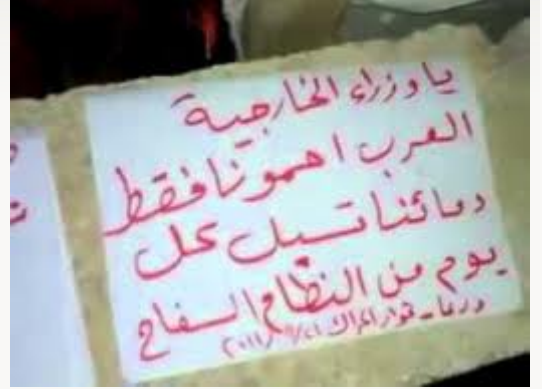 يا وزراء الخارجية
العرب احمونا فقط
دمائنا تسيل كل
يوم من النظام السفاح
درعا - ثوار الحراك